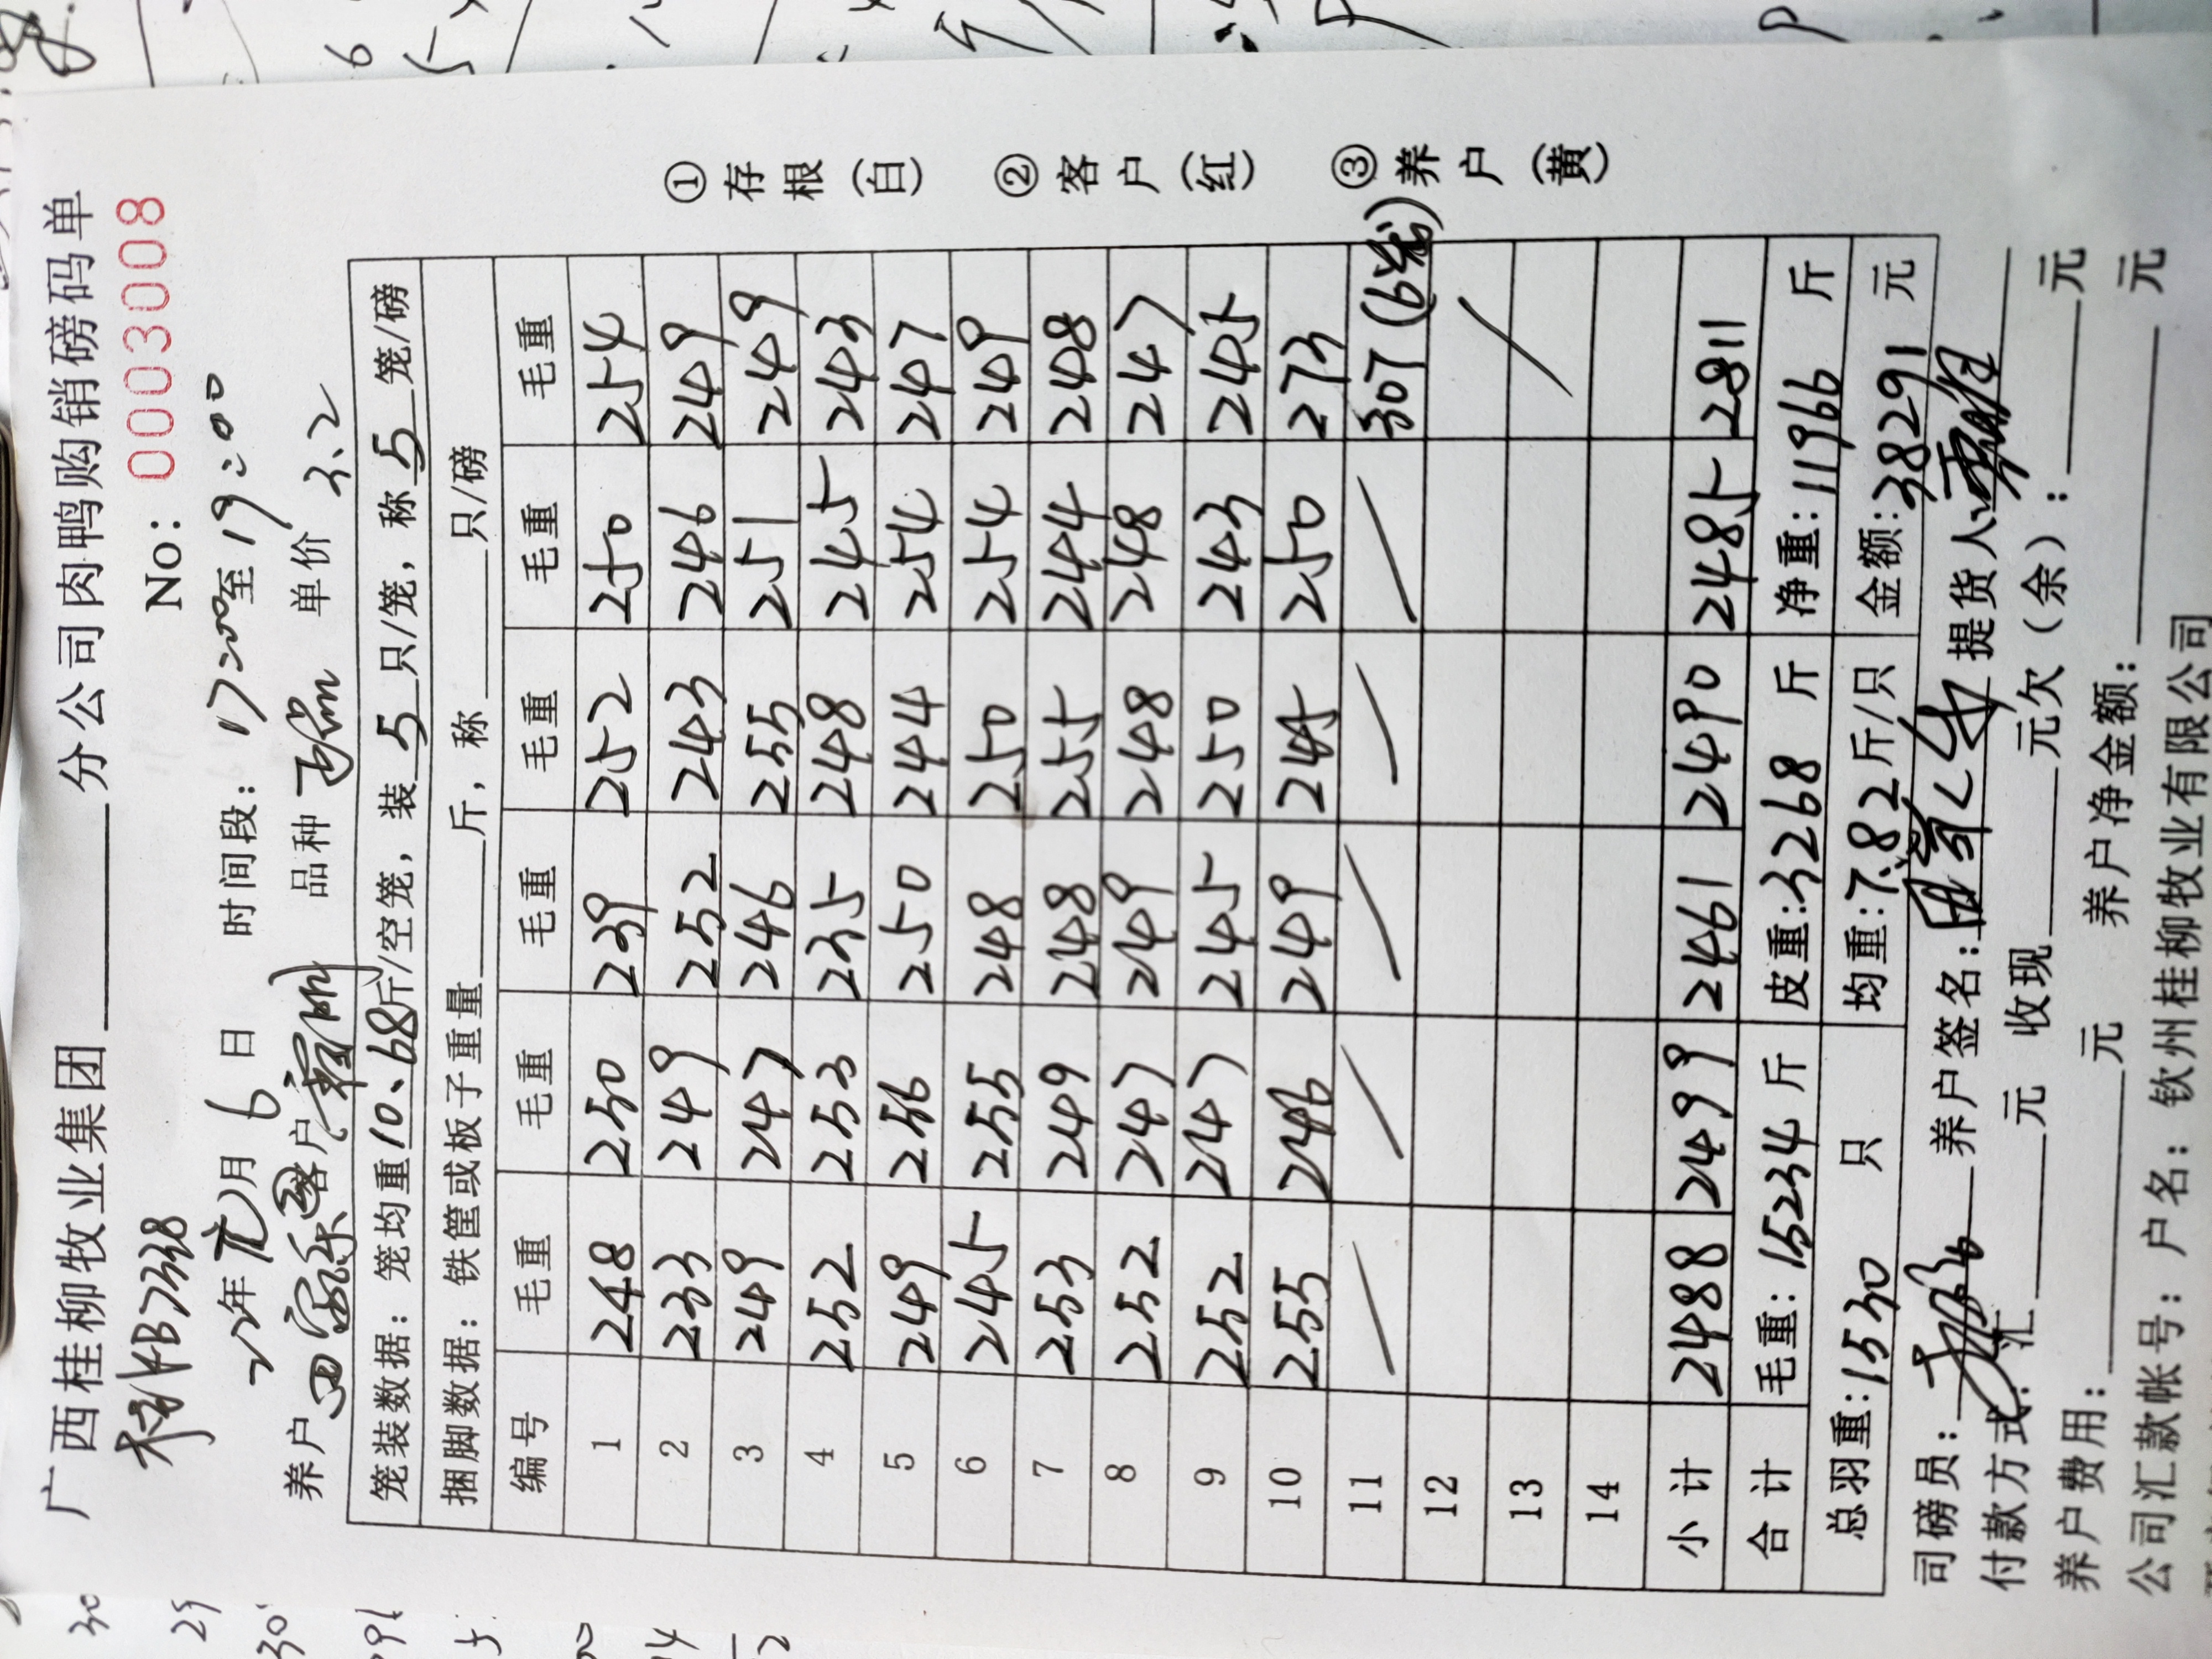 广西桂柳牧业集团 分公司肉鸭购销磅码单
B7338 No: 0003008
22年元月6日 时间段: 17:00至19:00
养户 客户 品种 单价 3.2
笼装数据: 笼均重10.68斤/空笼, 装5只/笼, 称5笼/磅
捆脚数据: 铁筐或板子重量 斤, 称 只/磅
编号 毛重 毛重 毛重 毛重 毛重 毛重
1 248 250 239 252 250 254
2 233 249 252 243 246 249
3 249 247 246 255 251 249
4 252 253 235 248 245 243
5 249 256 250 244 254 247
6 245 255 248 250 254 249
7 253 249 248 255 244 248
8 252 247 249 248 248 247
9 252 247 245 250 243 245
10 255 246 249 245 250 273
11 / / / / / 307 (6笼)
12 /
13
14
小计 2488 2499 2461 2490 2485 2811
合计 毛重: 15234斤 皮重:3268斤 净重:11966斤
总羽重:1530只 均重:7.82斤/只 金额:38291元
司磅员: 养户签名: 提货人
付款方式: 汇 元 收现 元欠(余): 元
养户费用: 元 养户净金额: 元
公司汇款帐号: 户名: 钦州桂柳牧业有限公司
①存根(白) ②客户(红) ③养户(黄)